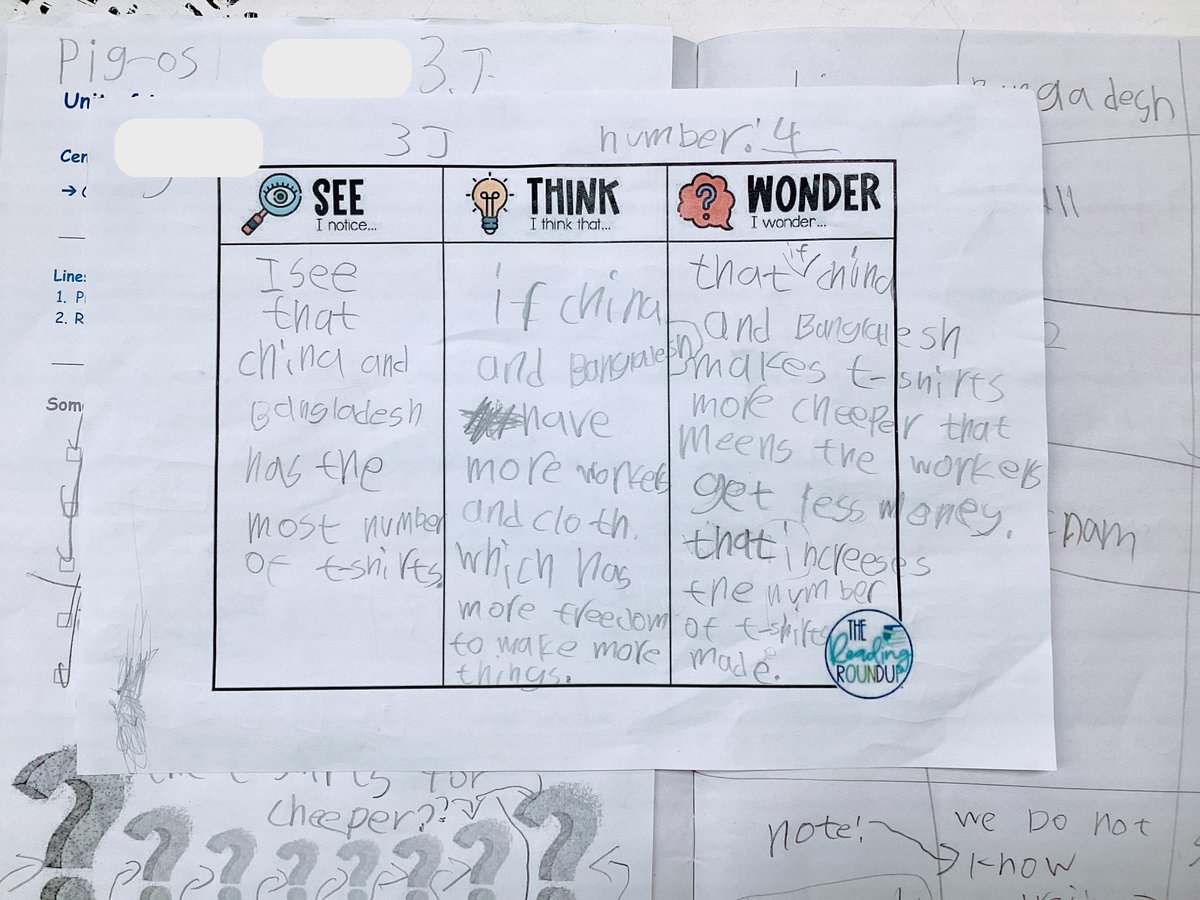 Pig-os 3.J
Uni
Cen
Lines
1. P
2. R
Som
ngladesh
3J number: 4
SEE
I notice...
I see
that
china and
Bangladesh
has the
most number
of t-shirts.
THINK
I think that...
if china
and Bangladesh
have
more workers
and cloth.
which has
more freedom
to make more
things.
WONDER
I wonder...
that if china
and Bangladesh
makes t-shirts
more cheeper that
meens the workers
get less money.
that increeses
the number
of t-shirts
made.
THE
Reading
ROUNDUP
11
2
nam
the t-shirts for
cheeper??
note!
we Do not
know